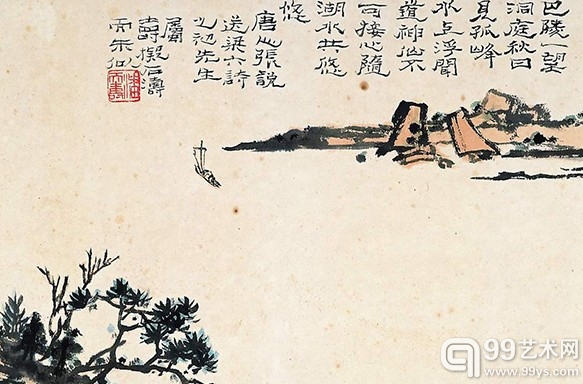 巴陵一望
洞庭秋日
見孤峰
水上浮聞
道神仙不
可接心隨
湖水共悠
悠
唐人張說
送梁六詩
先生
屬
壽擬石濤
而未似
99艺术网
www.99ys.com